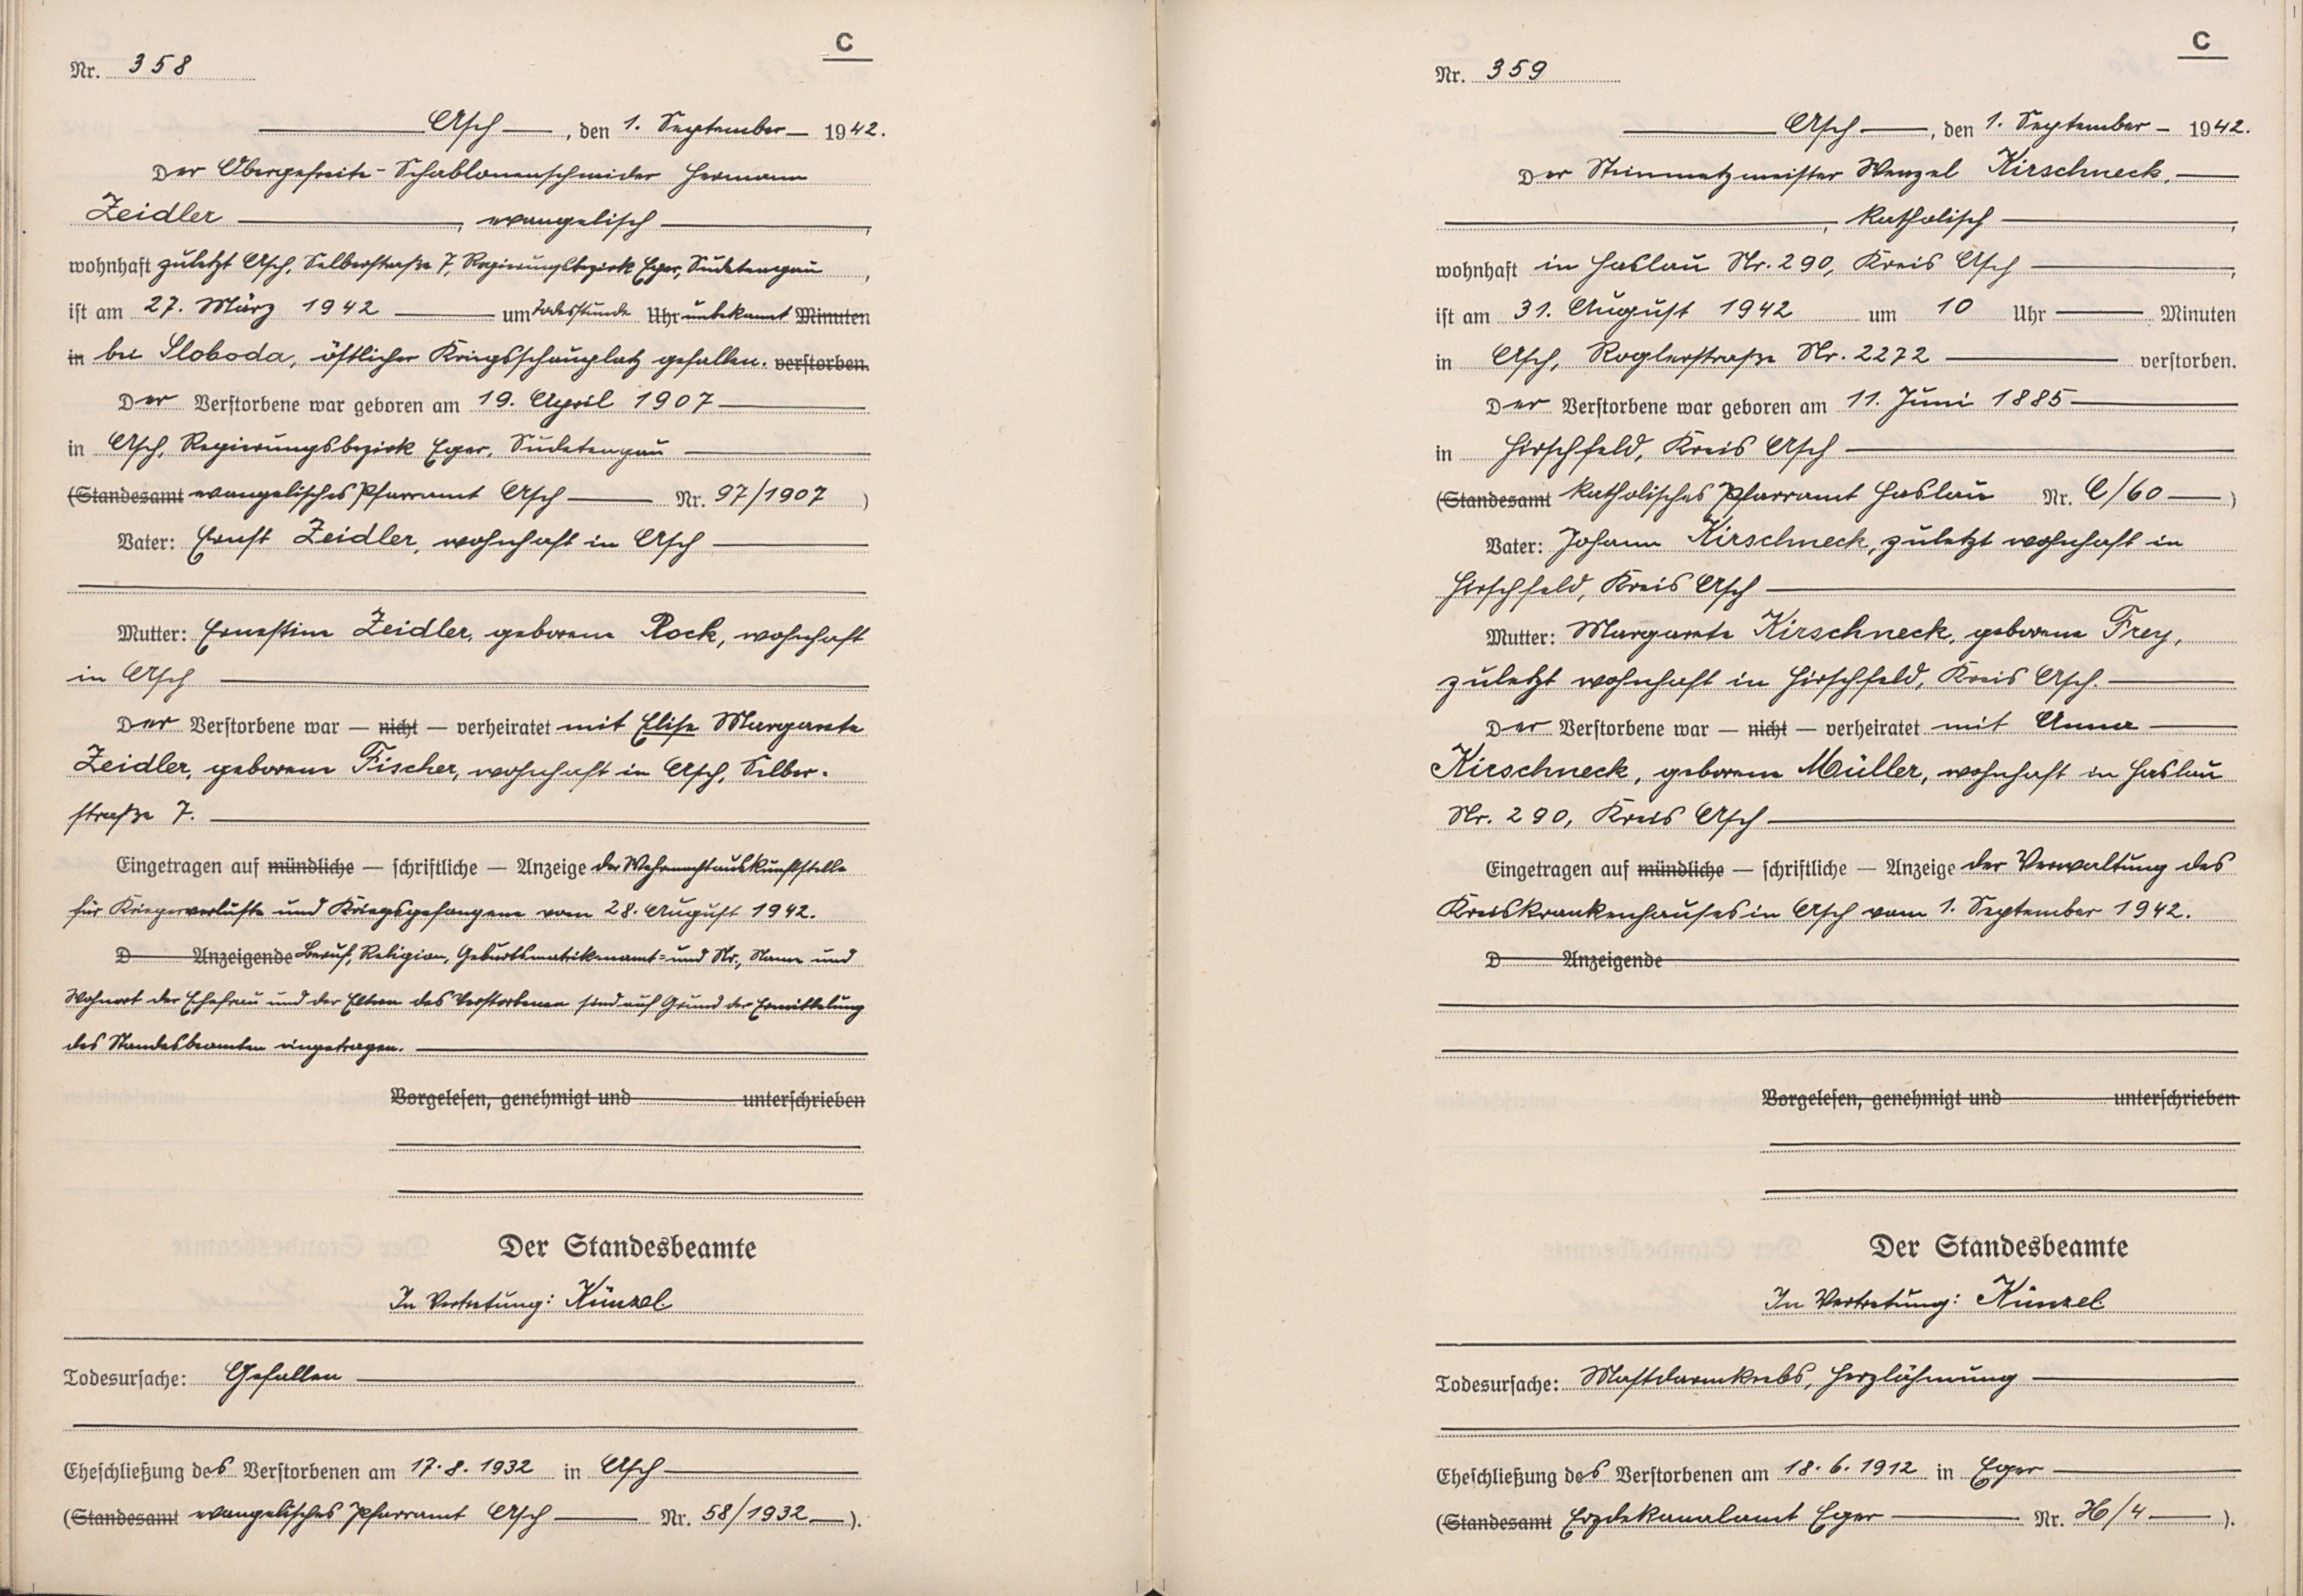 C
Nr. 358
Asch, den 1. September 1942.
Der Obergefreite-Schablonenschneider Hermann
Zeidler, evangelisch,
wohnhaft zuletzt Asch, Selberstraße 7, Regierungsbezirk Eger, Sudetengau,
ist am 27. März 1942 um Todesstunde Uhr unbekannt Minuten
in bei Sloboda, östlicher Kriegsschauplatz gefallen. verstorben.
Der Verstorbene war geboren am 19. April 1907
in Asch, Regierungsbezirk Eger, Sudetengau
(Standesamt evangelisches Pfarramt Asch Nr. 97/1907)
Vater: Ernst Zeidler, wohnhaft in Asch
Mutter: Ernestine Zeidler, geborene Rock, wohnhaft
in Asch
Der Verstorbene war — nicht — verheiratet mit Elise Margarete
Zeidler, geborene Fischer, wohnhaft in Asch, Selber-
straße 7.
Eingetragen auf mündliche — schriftliche — Anzeige der Wehrmachtauskunftstelle
für Kriegerverluste und Kriegsgefangene vom 28. August 1942.
D Anzeigende Beruf, Religion, Geburtsmatrikenamt- und Nr., Name und
Wohnort der Ehefrau und der Eltern des Verstorbenen sind auf Grund der Ermittelung
des Standesbeamten eingetragen.
Vorgelesen, genehmigt und unterschrieben
Der Standesbeamte
In Vertretung: Künzel
Todesursache: Gefallen
Eheschließung des Verstorbenen am 17.8.1932 in Asch
(Standesamt evangelisches Pfarramt Asch Nr. 58/1932).
C
Nr. 359
Asch, den 1. September 1942.
Der Steinmetzmeister Wenzel Kirschneck,
, katholisch,
wohnhaft in Haslau Nr. 290, Kreis Asch,
ist am 31. August 1942 um 10 Uhr Minuten
in Asch, Roglerstraße Nr. 2272 verstorben.
Der Verstorbene war geboren am 11. Juni 1885
in Hirschfeld, Kreis Asch
(Standesamt katholisches Pfarramt Haslau Nr. C/60)
Vater: Johann Kirschneck, zuletzt wohnhaft in
Hirschfeld, Kreis Asch
Mutter: Margarete Kirschneck, geborene Frey,
zuletzt wohnhaft in Hirschfeld, Kreis Asch.
Der Verstorbene war — nicht — verheiratet mit Anna
Kirschneck, geborene Müller, wohnhaft in Haslau
Nr. 290, Kreis Asch
Eingetragen auf mündliche — schriftliche — Anzeige der Verwaltung des
Kreiskrankenhauses in Asch vom 1. September 1942.
D Anzeigende
Vorgelesen, genehmigt und unterschrieben
Der Standesbeamte
In Vertretung: Künzel
Todesursache: Mastdarmkrebs, Herzlähmung
Eheschließung des Verstorbenen am 18.6.1912 in Eger
(Standesamt Erzdekanalamt Eger Nr. H/4).